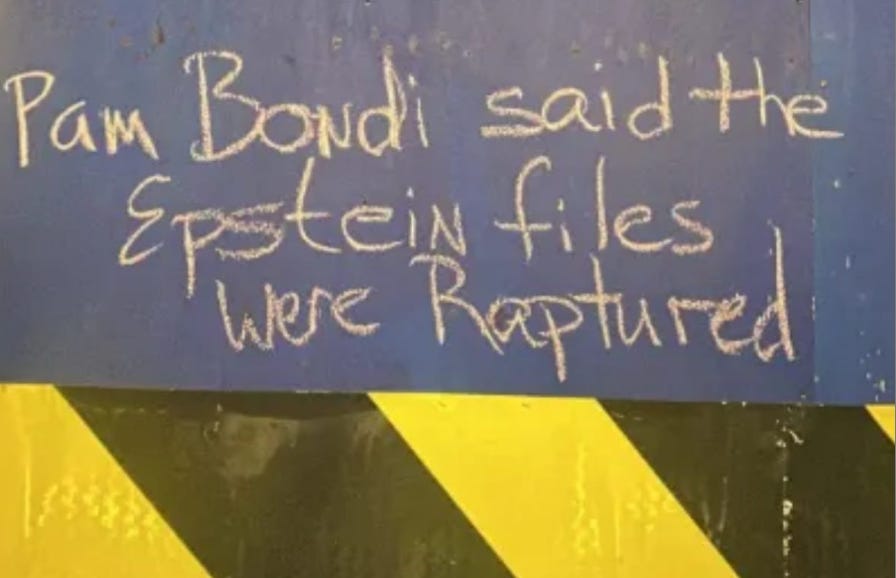 Pam Bondi said the
Epstein files
were Raptured